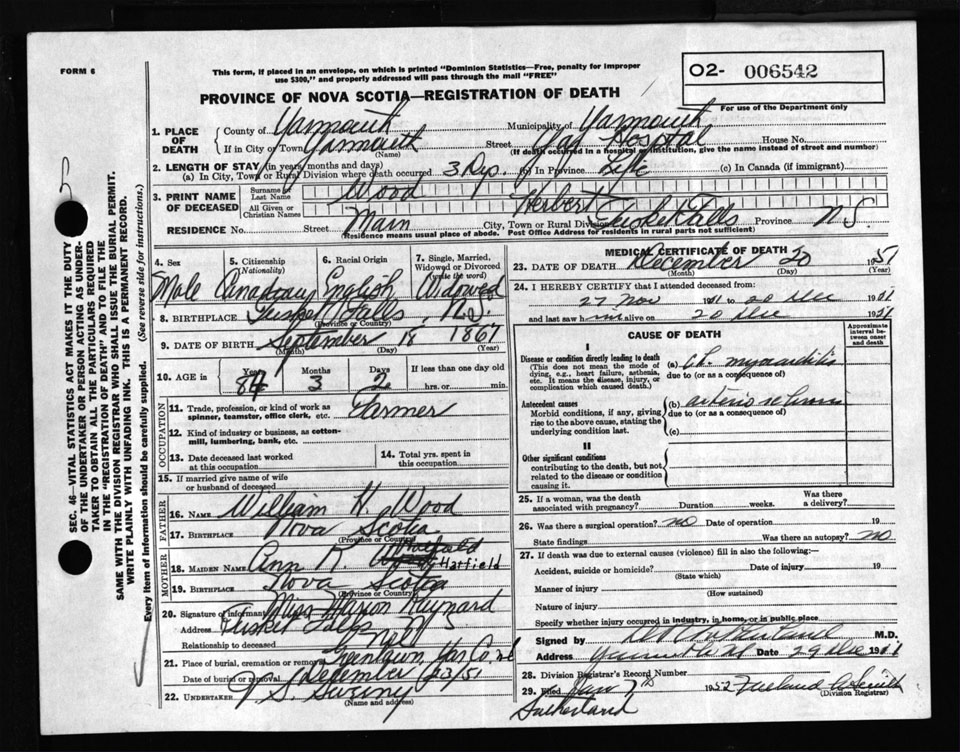 FORM 6
This form, if placed in an envelope, on which is printed "Dominion Statistics—Free, penalty for improper
use $300," and properly addressed will pass through the mail "FREE"
O2- 006542
PROVINCE OF NOVA SCOTIA—REGISTRATION OF DEATH
For use of the Department only
1. PLACE OF DEATH
County of Yarmouth Municipality of Yarmouth
If in City or Town Yarmouth Street Yar Hospital House No.
(Name) (If death occurred in a hospital or institution, give the name instead of street and number)
2. LENGTH OF STAY (in years, months and days)
(a) In City, Town or Rural Division where death occurred 3 Dys. (b) In Province Life (c) In Canada (if immigrant)
3. PRINT NAME OF DECEASED
Surname or Last Name Wood
All Given or Christian Names Herbert
RESIDENCE No. Street Main City, Town or Rural Division Tusket Falls Province N S.
(Residence means usual place of abode. Post Office Address for residents in rural parts not sufficient)
4. Sex
5. Citizenship (Nationality)
6. Racial Origin
7. Single, Married, Widowed or Divorced (write the word)
Male Canadian English Widowed
8. BIRTHPLACE Tusket Falls, N.S.
(Province or Country)
9. DATE OF BIRTH September 18 1867
(Month) (Day) (Year)
10. AGE in Years Months Days If less than one day old
84 3 2 hrs. or min.
OCCUPATION
11. Trade, profession, or kind of work as spinner, teamster, office clerk, etc. Farmer
12. Kind of industry or business, as cotton-mill, lumbering, bank, etc.
13. Date deceased last worked at this occupation
14. Total yrs. spent in this occupation
15. If married give name of wife or husband of deceased
FATHER
16. NAME William H. Wood
17. BIRTHPLACE Nova Scotia
(Province or Country)
MOTHER
18. MAIDEN NAME Ann R. Hatfield
19. BIRTHPLACE Nova Scotia
(Province or Country)
20. Signature of informant Miss Marion Raynard
Address Tusket Falls
Relationship to deceased
21. Place of burial, cremation or removal Greenlawn, Yar Co
Date of burial or removal December 23/51
22. UNDERTAKER V. S. Sweeny
(Name and address)
MEDICAL CERTIFICATE OF DEATH
23. DATE OF DEATH December 20 1951
(Month) (Day) (Year)
24. I HEREBY CERTIFY that I attended deceased from:
27 Nov 1951 to 20 Dec 1951
and last saw him alive on 20 Dec 1951
CAUSE OF DEATH
Approximate interval between onset and death
I
Disease or condition directly leading to death
(This does not mean the mode of dying, e.g., heart failure, asthenia, etc. It means the disease, injury, or complication which caused death.)
(a) Ch. myocarditis
due to (or as a consequence of)
Antecedent causes
Morbid conditions, if any, giving rise to the above cause, stating the underlying condition last.
(b)
due to (or as a consequence of)
(c)
II
Other significant conditions
contributing to the death, but not related to the disease or condition causing it.
25. If a woman, was the death associated with pregnancy? Duration weeks. Was there a delivery?
26. Was there a surgical operation? no Date of operation 19
State findings Was there an autopsy? no
27. If death was due to external causes (violence) fill in also the following:—
Accident, suicide or homicide? Date of injury 19
(State which)
Manner of injury
(How sustained)
Nature of injury
Specify whether injury occurred in industry, in home, or in public place
Signed by M.D.
Address Date 29 Dec 1951
28. Division Registrar's Record Number
29. Filed Jan 7th 1952
(Division Registrar)
Sutherland
SEC. 46—VITAL STATISTICS ACT MAKES IT THE DUTY
OF THE UNDERTAKER OR PERSON ACTING AS UNDER-
TAKER TO OBTAIN ALL THE PARTICULARS REQUIRED
IN THE "REGISTRATION OF DEATH" AND TO FILE THE
SAME WITH THE DIVISION REGISTRAR WHO SHALL ISSUE THE BURIAL PERMIT.
WRITE PLAINLY WITH UNFADING INK. THIS IS A PERMANENT RECORD.
Every Item of Information should be carefully supplied. (See reverse side for instructions.)